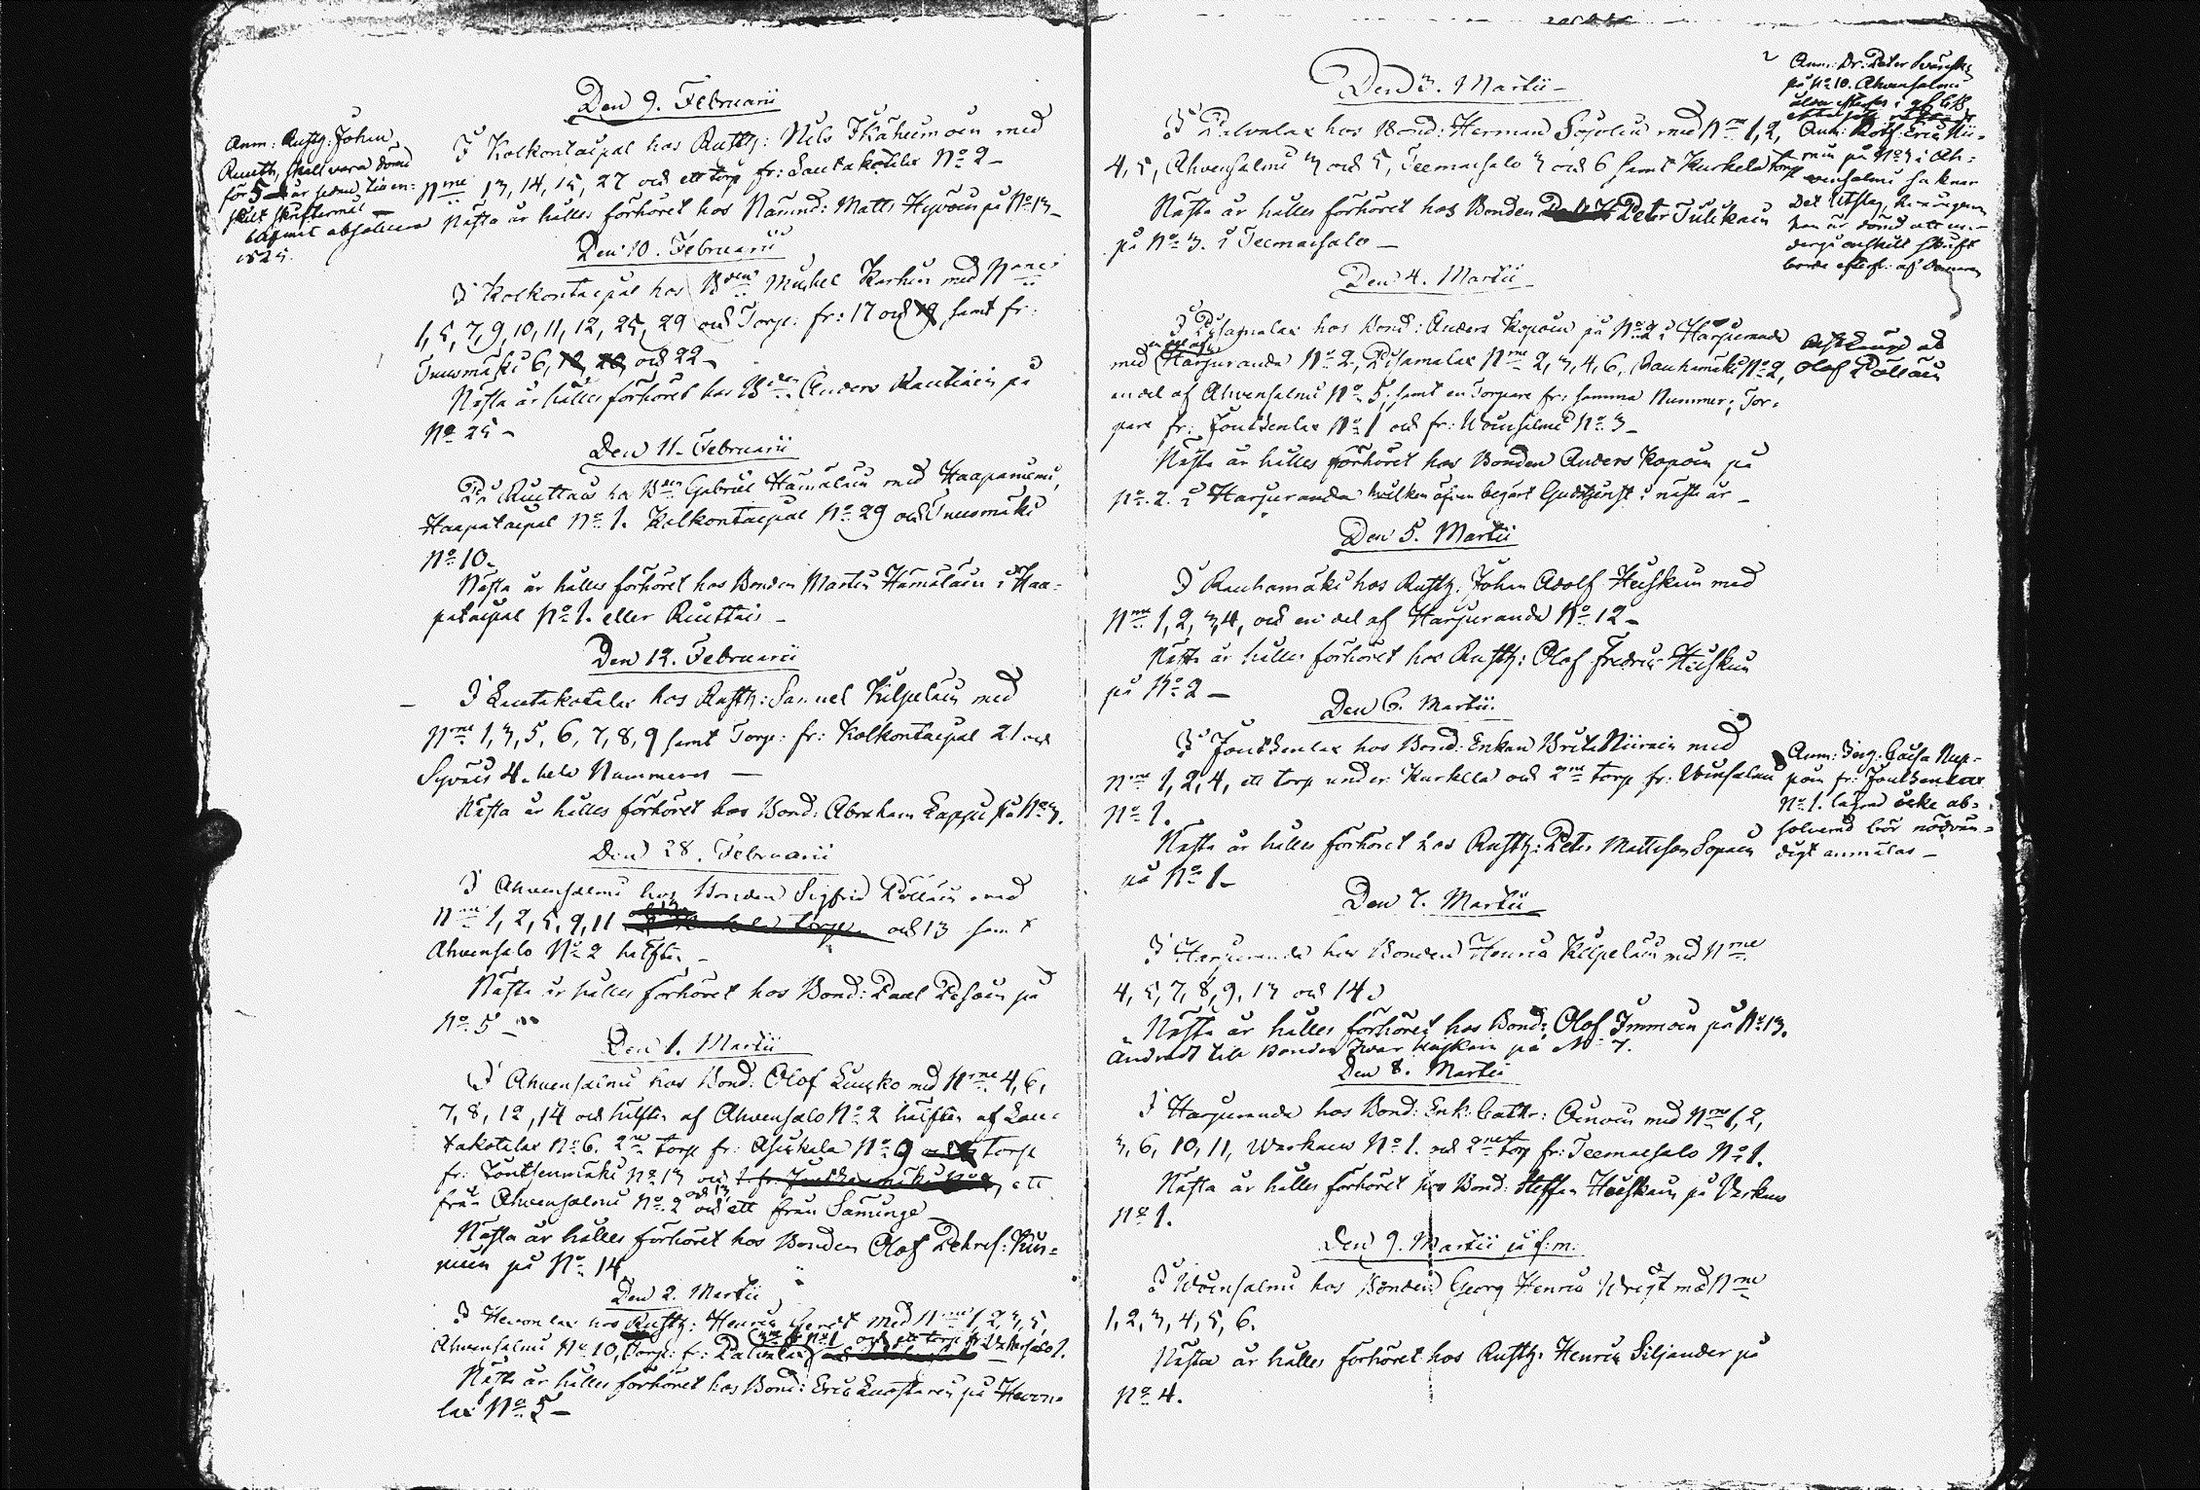 Den 9. Februarii
Anm: Rustg: Johan
Ruuth, skall vara dömd
för 5 år sedan
1825.
I Kolkontaipal hos Rusth: Nils Ikäheimoin med
Nrne 13, 14, 15, 27 och ett torp fr: Lautakotilax No 2 –
Nästa år hålles förhöret hos Nämnd: Matts Hyvöin på No 13 –
Den 10. Februarii
I Kolkontaipal hos Bden Michel Karhu med Nrne
1, 5, 7, 9, 10, 11, 12, 25, 29 och Torp: fr: 17 och 19 samt fr:
6, och 22 –
Nästa år hålles förhöret hos Bden Anders Rautiain på
No 25 –
Den 11. Februarii
På Ruuttais hos Bden Gabriel Hämäläin med Haapaniemi,
Haapataipal No 1. Kolkontaipal No 29 och
No 10.
Nästa år hålles förhöret hos Bonden Martin Hämäläin i Haa-
pataipal No 1. eller Ruuttais –
Den 12. Februarii
I Lautakotalax hos Rusth: Samuel Kilpeläin med
Nrne 1, 3, 5, 6, 7, 8, 9 samt Torp: fr: Kolkontaipal 21 och
Syväis 4. hela Nummern –
Nästa år hålles förhöret hos Bond: Abraham Lappi på No 3.
Den 28. Februarii
I Ahvensalmi hos Bonden Sigfrid Pölläin med
Nrne 1, 2, 5, 9, 11 och 13 samt
Ahvensalo No 2 hälften –
Nästa år hålles förhöret hos Bond: Paul Pesoin på
No 5 –
Den 1. Martii
I Ahvensalmi hos Bond: Olof Luukko med Nrne 4, 6,
7, 8, 12, 14 och hälften af Ahvensalo No 2 hälften af Lau-
takotalax No 6. 2ne torp fr: No 9 torp
fr: Joutsenmäki No 13 och ett
från Ahvensalmi No 2 och 13 och ett från Saminge
Nästa år hålles förhöret hos Bonden Olof Pehrs: Kin-
nuin på No 14
Den 2. Martii
I Hevonlax hos Rusth: Henrik med Nrne 1, 2, 3, 5,
Ahvensalmi No 10, Torp: fr: Palvalax
Nästa år hålles förhöret hos Bond: Eric Luostarin på Hevon-
lax No 5 –
Den 3. Martii –
I Palvalax hos Bond: Herman Sojoin med Nrne 1, 2,
4, 5, Ahvensalmi 3 och 5, Teemasalo 3 och 6 samt Kurkela torp
Nästa år hålles förhöret hos Bonden Peter Tulikain
på No 3. i Teemasalo –
på No 10. Ahvensalmi
på No 3 i Ah-
vensalmi saknar
Det utslag, hvarigenom
han är dömd att un-
dergå enskilt skrift
Den 4. Martii
I Pisamalax hos Bond: Anders Kopoin på No 2 i Harjuranda
med en del af Harjuranda No 2, Pisamalax Nrne 2, 3, 4, 6, Rauhamäki No 2,
en del af Ahvensalmi No 5, samt en Torpare fr: samma Nummer; Tor-
pare fr: Joutsenlax No 1 och fr: Woinsalmi No 3 –
Olof Pöllöin
Nästa år hålles förhöret hos Bonden Anders Kopoin på
No 2. i Harjuranda hvilken äfven begärt Gudstjenst i nästa år –
Den 5. Martii
I Rauhamäki hos Rusth. Johan Adolf Heiskain med
Nrne 1, 2, 3, 4, och en del af Harjuranda No 12 –
Nästa år hålles förhöret hos Rusth: Olof Fredric Heiskain
på No 2 –
Den 6. Martii.
I Joutsenlax hos Bond: Enkan Brita Niirain med
Nrne 1, 2, 4, ett torp under Kurkela och 2ne torp fr: Woinsalmi
No 1.
Nästa år hålles förhöret hos Rusth: Peter Mattsson Sopain
på No 1 –
Anm: Caisa Rep-
poin fr: Joutsenlax
No 1. icke ab-
solverad bör nödvän-
digt anmälas –
Den 7. Martii
I Harjuranda hos Bonden Henric Kilpeläin med Nrne
4, 5, 7, 8, 9, 13 och 14.
Nästa år hålles förhöret hos Bond: Olof Immoin på No 13.
Ändradt till Bonden Ivar Heiskain på No 7.
Den 8. Martii
I Harjuranda hos Bond: Enk: Cathr: Oinoin med Nrne 1, 2,
3, 6, 10, 11, Warkaus No 1. och 2ne torp fr: Teemasalo No 1.
Nästa år hålles förhöret hos Bond: Steffan Heiskain på Varkaus
No 1.
Den 9. Martii på f:m.
I Woinsalmi hos Bonden Georg Henric Wrigt med Nrne
1, 2, 3, 4, 5, 6.
Nästa år hålles förhöret hos Rusth: Henric Siljander på
No 4.